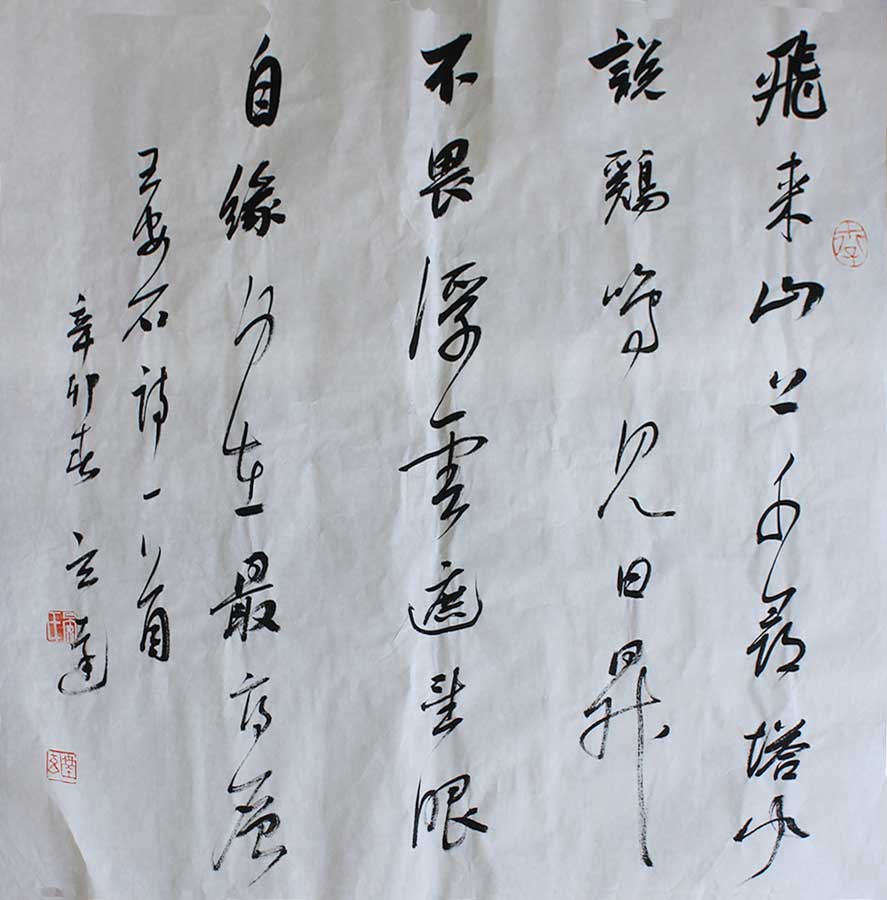 飛来山上千尋塔聞
説鷄鳴見日昇
不畏浮雲遮望眼
自緣身在最高層
王安石詩一首
辛卯春 達